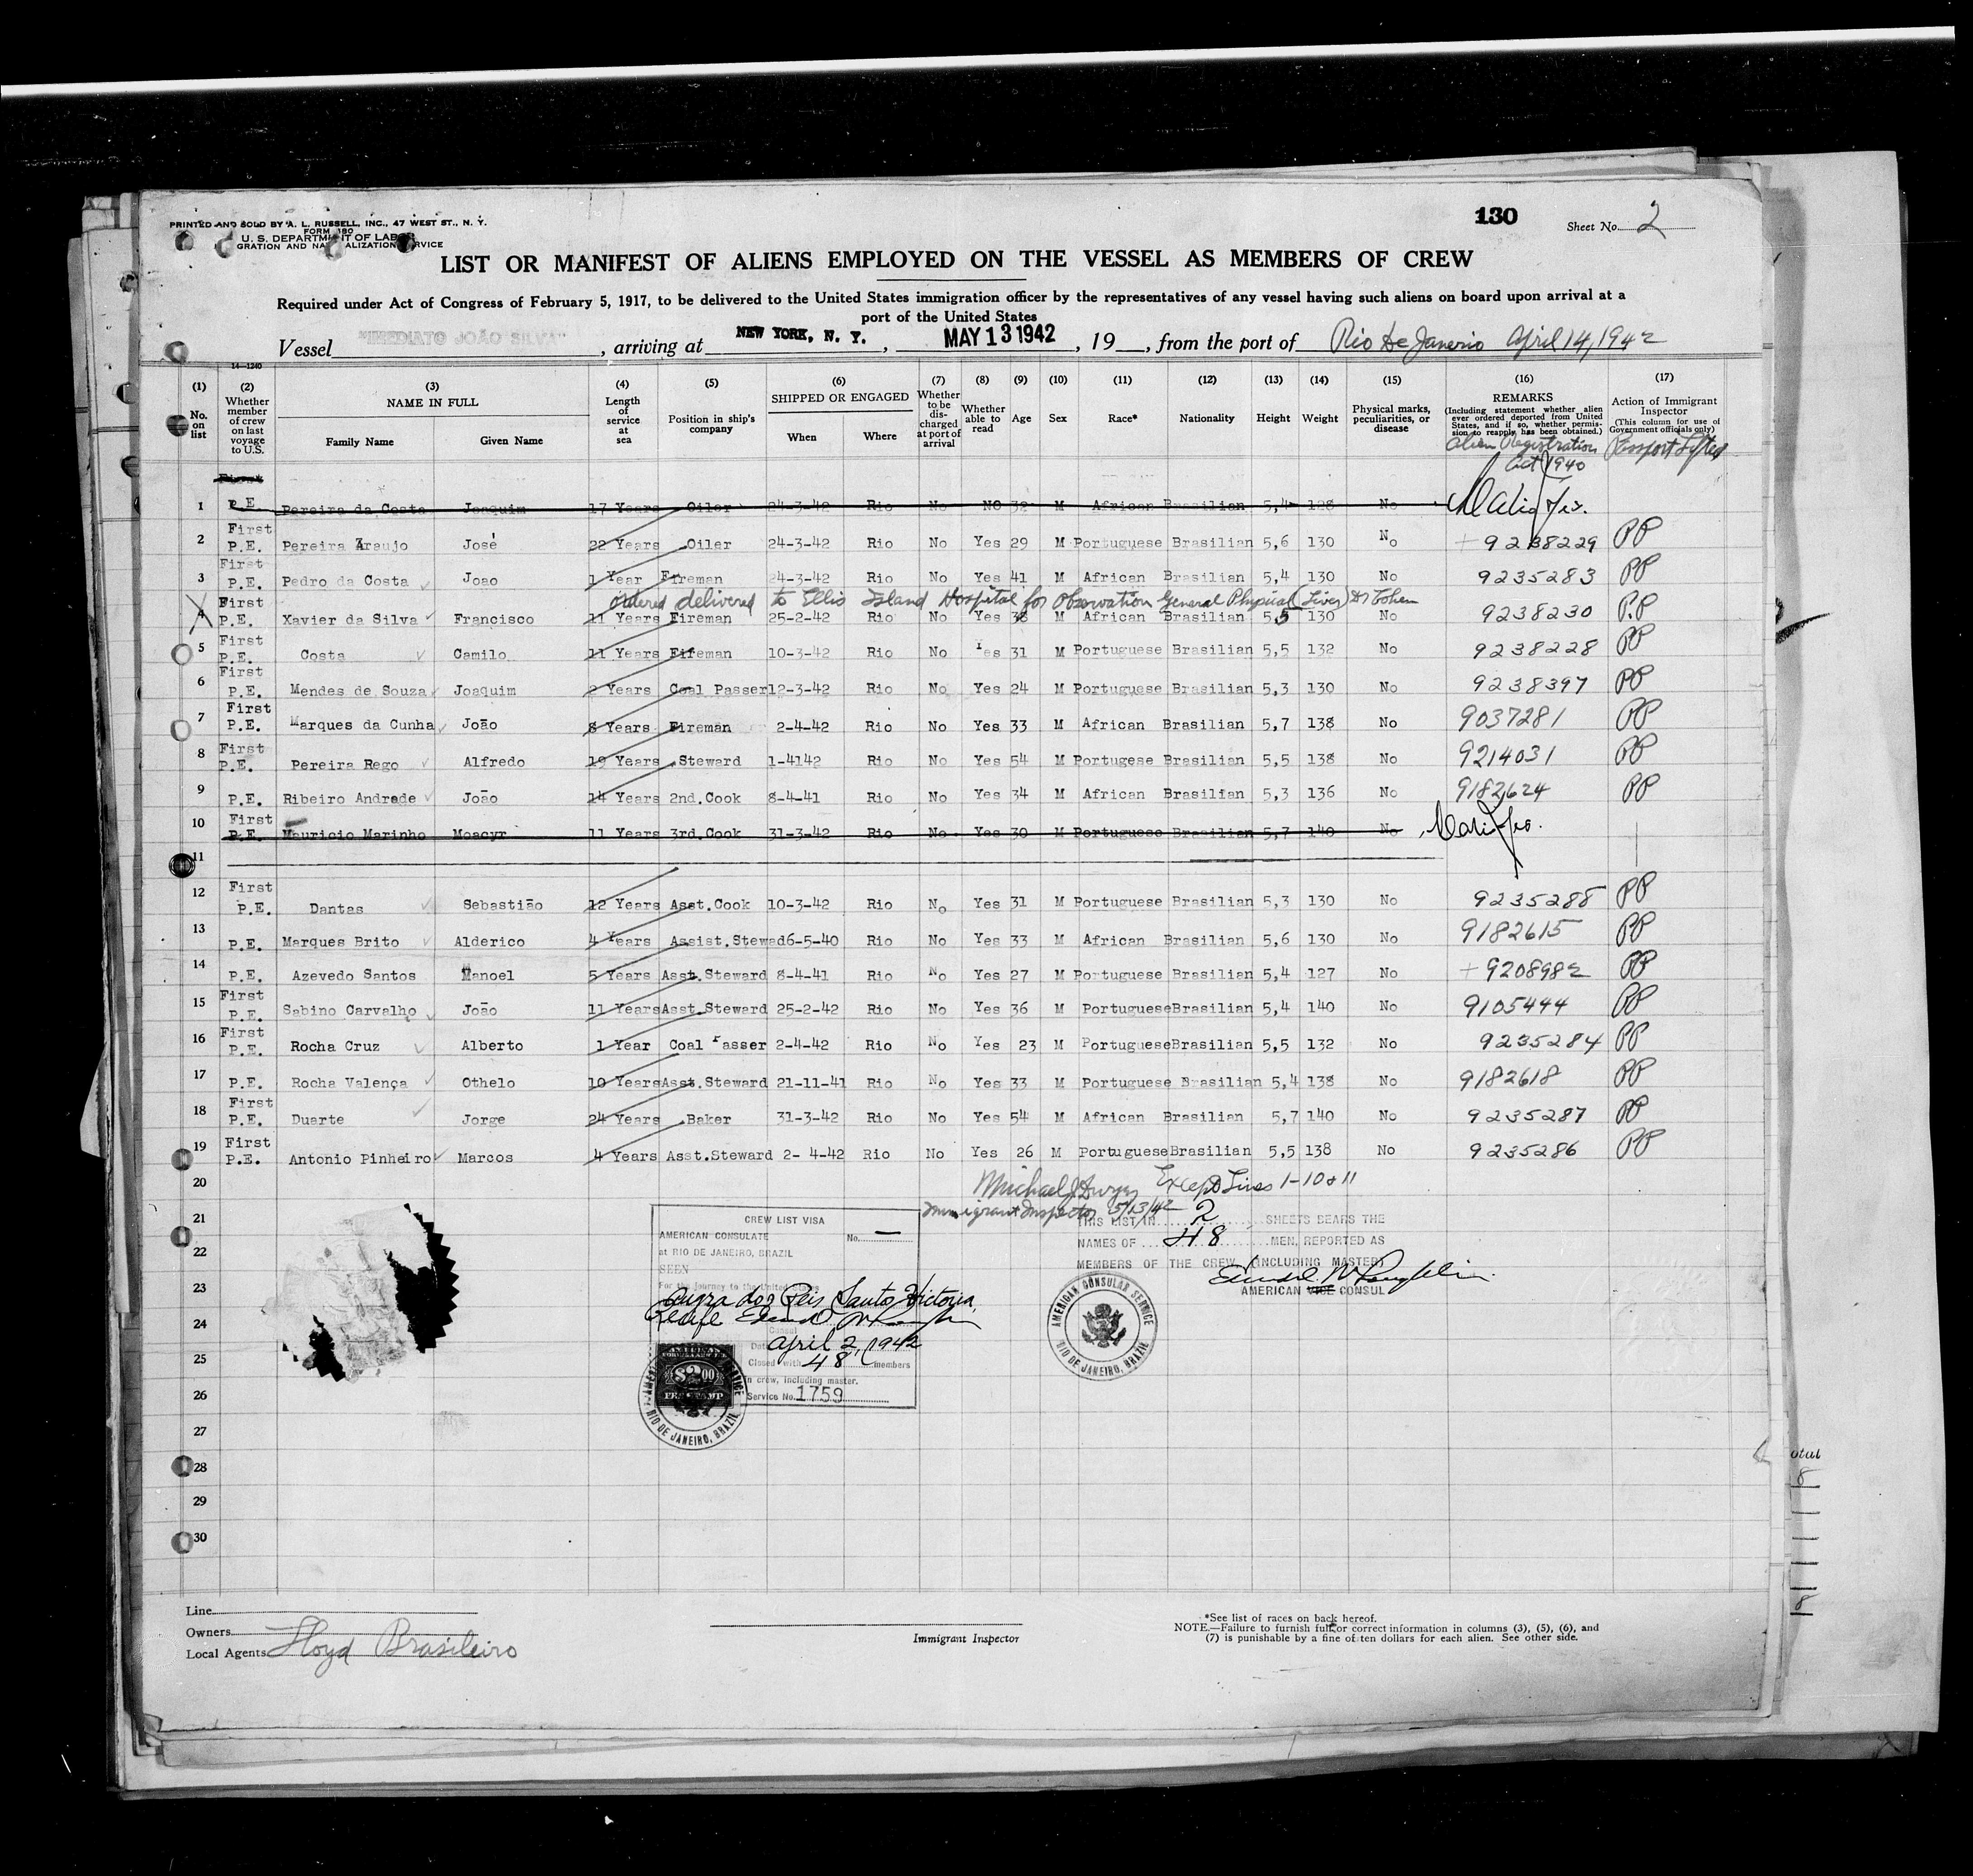 PRINTED AND SOLD BY A. L. RUSSELL, INC., 47 WEST ST., N. Y.
FORM 180
U. S. DEPARTMENT OF LABOR
130
Sheet No. 2
LIST OR MANIFEST OF ALIENS EMPLOYED ON THE VESSEL AS MEMBERS OF CREW
Required under Act of Congress of February 5, 1917, to be delivered to the United States immigration officer by the representatives of any vessel having such aliens on board upon arrival at a
port of the United States
Vessel "IMEDIATO JOÃO SILVA", arriving at NEW YORK, N. Y., MAY 13 1942, 19__, from the port of Rio De Janerio April 14, 1942
14-1240
(1) (2) (3) (4) (5) (6) (7) (8) (9) (10) (11) (12) (13) (14) (15) (16) (17)
No. on list
Whether member of crew on last voyage to U.S.
NAME IN FULL
Family Name Given Name
Length of service at sea
Position in ship's company
SHIPPED OR ENGAGED
When Where
Whether to be discharged at port of arrival
Whether able to read
Age
Sex
Race*
Nationality
Height
Weight
Physical marks, peculiarities, or disease
REMARKS
(Including statement whether alien ever ordered deported from United States, and if so, whether permission to reapply has been obtained.)
Action of Immigrant Inspector
(This column for use of Government officials only)
Alien Registration Act 1940
Passport Lifted
1 P.E. Pereira da Costa Joaquim 17 Years Oiler 24-3-42 Rio No NO 32 M African Brasilian 5,4 128 No
2 First P.E. Pereira Araujo José 22 Years Oiler 24-3-42 Rio No Yes 29 M Portuguese Brasilian 5,6 130 No +9238229 PP
3 First P.E. Pedro da Costa Joao 1 Year Fireman 24-3-42 Rio No Yes 41 M African Brasilian 5,4 130 No 9235283 PP
Ordered delivered to Ellis Island Hospital for Observation General Physical (Liver) Dr Cohen
4 First P.E. Xavier da Silva Francisco 11 Years Fireman 25-2-42 Rio No Yes 38 M African Brasilian 5,5 130 No 9238230 P.P
5 First P.E. Costa Camilo 11 Years Fireman 10-3-42 Rio No Yes 31 M Portuguese Brasilian 5,5 132 No 9238228 PP
6 First P.E. Mendes de Souza Joaquim 2 Years Coal Passer 12-3-42 Rio No Yes 24 M Portuguese Brasilian 5,3 130 No 9238397 PP
7 First P.E. Marques da Cunha João 8 Years Fireman 2-4-42 Rio No Yes 33 M African Brasilian 5,7 138 No 9037281 PP
8 First P.E. Pereira Rego Alfredo 19 Years Steward 1-4142 Rio No Yes 54 M Portugese Brasilian 5,5 138 No 9214031 PP
9 P.E. Ribeiro Andrade João 14 Years 2nd.Cook 8-4-41 Rio No Yes 34 M African Brasilian 5,3 136 No 9182624 PP
10 First P.E. Mauricio Marinho Moacyr 11 Years 3rd.Cook 31-3-42 Rio No Yes 30 M Portuguese Brasilian 5,7 140 No
11
12 First P.E. Dantas Sebastião 12 Years Asst.Cook 10-3-42 Rio No Yes 31 M Portuguese Brasilian 5,3 130 No 9235288 PP
13 P.E. Marques Brito Alderico 4 Years Assist.Stewad 6-5-40 Rio No Yes 33 M African Brasilian 5,6 130 No 9182615 PP
14 P.E. Azevedo Santos Manoel 5 Years Asst.Steward 8-4-41 Rio No Yes 27 M Portuguese Brasilian 5,4 127 No +9208982 PP
15 First P.E. Sabino Carvalho João 11 Years Asst.Steward 25-2-42 Rio No Yes 36 M Portuguese Brasilian 5,4 140 No 9105444 PP
16 First P.E. Rocha Cruz Alberto 1 Year Coal Passer 2-4-42 Rio No Yes 23 M Portuguese Brasilian 5,5 132 No 9235284 PP
17 P.E. Rocha Valença Othelo 10 Years Asst.Steward 21-11-41 Rio No Yes 33 M Portuguese Brasilian 5,4 138 No 9182618 PP
18 First P.E. Duarte Jorge 24 Years Baker 31-3-42 Rio No Yes 54 M African Brasilian 5,7 140 No 9235287 PP
19 First P.E. Antonio Pinheiro Marcos 4 Years Asst.Steward 2-4-42 Rio No Yes 26 M Portuguese Brasilian 5,5 138 No 9235286 PP
20
Michael J. Dwyer Except Lines 1-10 & 11
Immigrant Inspector 5/13/42
21
22
23
24
25
26
27
28
29
30
CREW LIST VISA
AMERICAN CONSULATE No. —
at RIO DE JANEIRO, BRAZIL
SEEN
For the journey to the United States
Angra dos Reis Santos Victoria,
Recife
Consul
Date April 2, 1942
Closed with 48 members
in crew, including master.
Service No. 1759
$2.00
FEE STAMP
RIO DE JANEIRO, BRAZIL
THIS LIST IN 2 SHEETS BEARS THE
NAMES OF 48 MEN, REPORTED AS
MEMBERS OF THE CREW (INCLUDING MASTER)
AMERICAN VICE CONSUL
AMERICAN CONSULAR SERVICE
RIO DE JANEIRO, BRAZIL
otal
8
8
Line
Owners
Local Agents Lloyd Brasileiro
Immigrant Inspector
*See list of races on back hereof.
NOTE.—Failure to furnish full or correct information in columns (3), (5), (6), and
(7) is punishable by a fine of ten dollars for each alien. See other side.